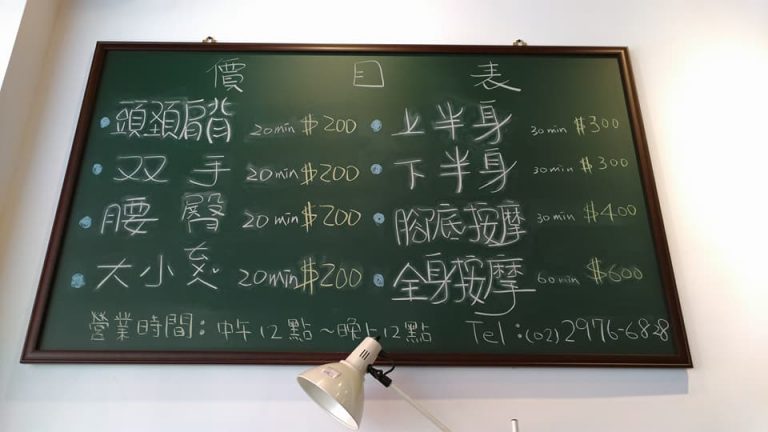 價目表
頭頸肩背 20min $200
双手 20min $200
腰臀 20min $200
大小 20min $200
上半身 30min $300
下半身 30min $300
腳底按摩 30min $400
全身按摩 60min $600
營業時間：中午12點～晚上12點
Tel：(02)2976-6828